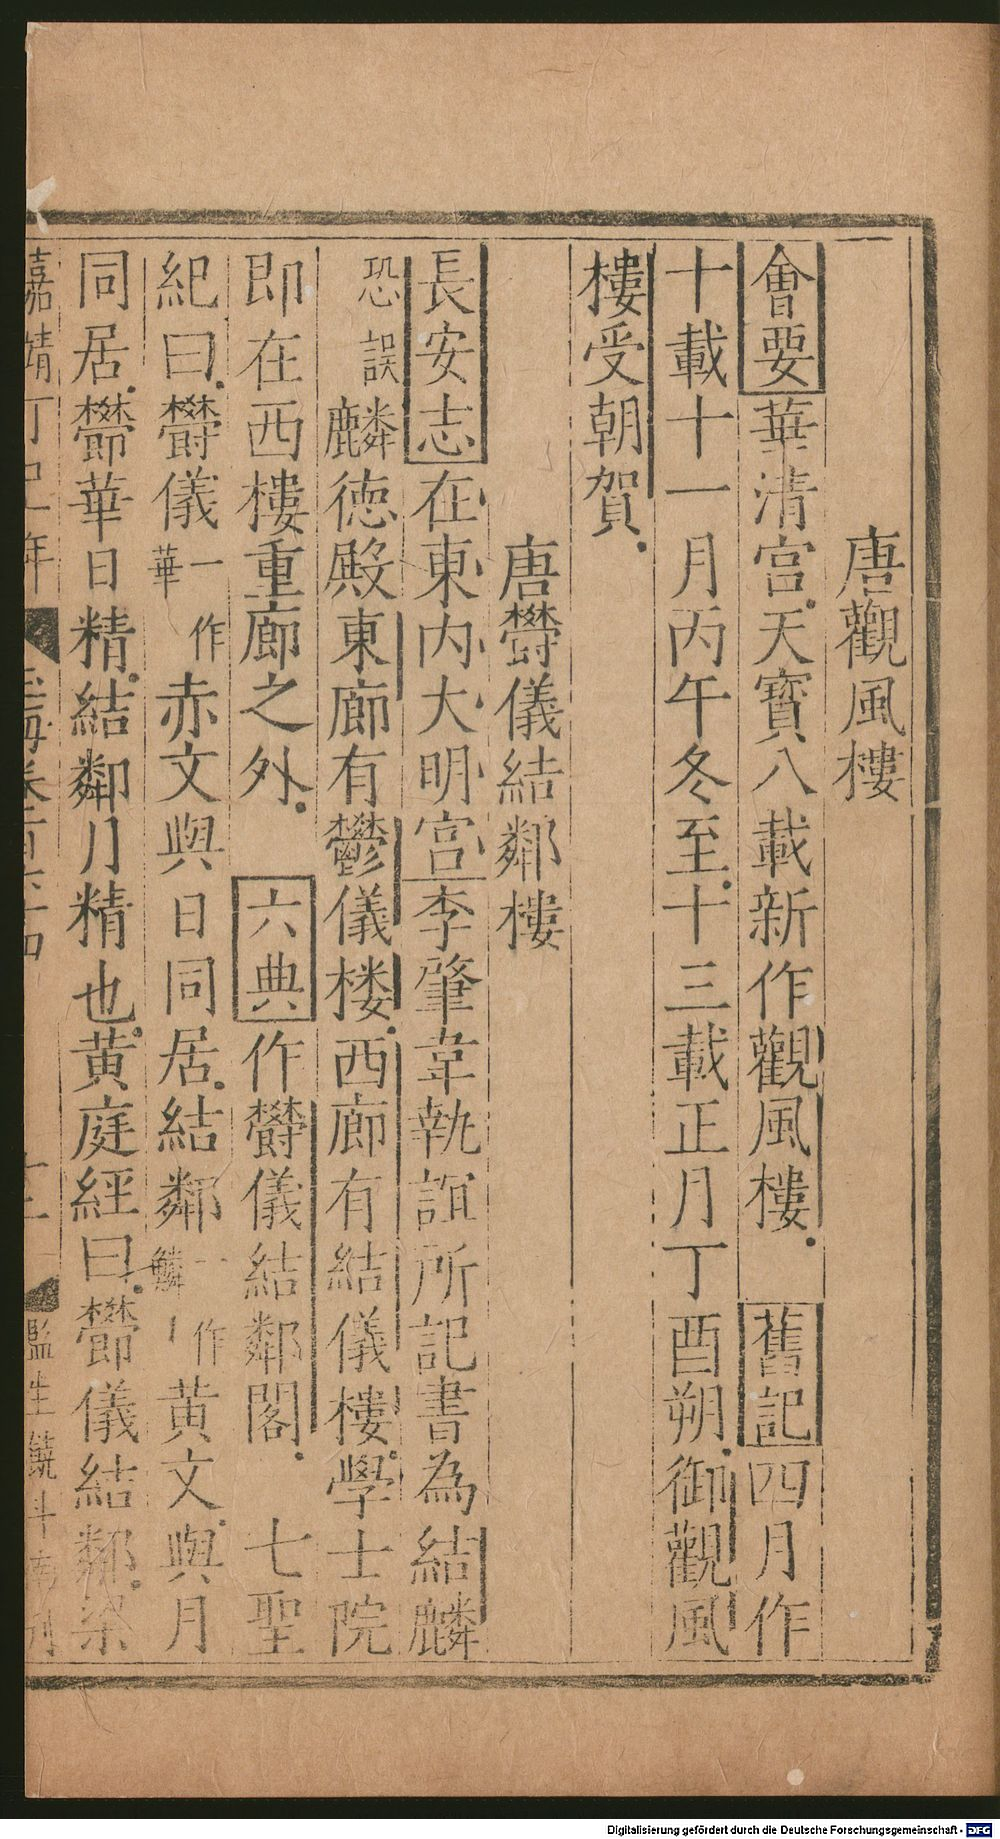 唐觀風樓
會要華清宮天寶八載新作觀風樓舊記四月作
十載十一月丙午冬至十三載正月丁酉朔御觀風
樓受朝賀
唐欝儀結鄰樓
長安志在東內大明宮李肇韋執誼所記書為結麟
恐誤麟德殿東廊有鬱儀楼西廊有結儀樓學士院
即在西樓重廊之外六典作欝儀結鄰閣七聖
紀曰欝儀一作華赤文與日同居結鄰一作鱗黃文與月
同居欝華日精結鄰月精也黃庭經曰欝儀結鄰
嘉靖丁巳年 玉海卷百六十四 監生饒斗南刊
Digitalisierung gefördert durch die Deutsche Forschungsgemeinschaft - DFG